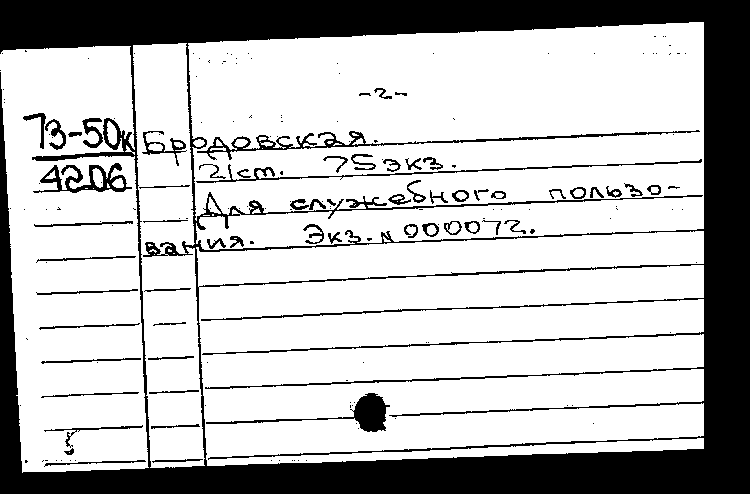 -2-
73-50к Бродовская.
4206 21cm. 75 экз.
Для служебного пользо-
вания. Экз. № 000072.
5